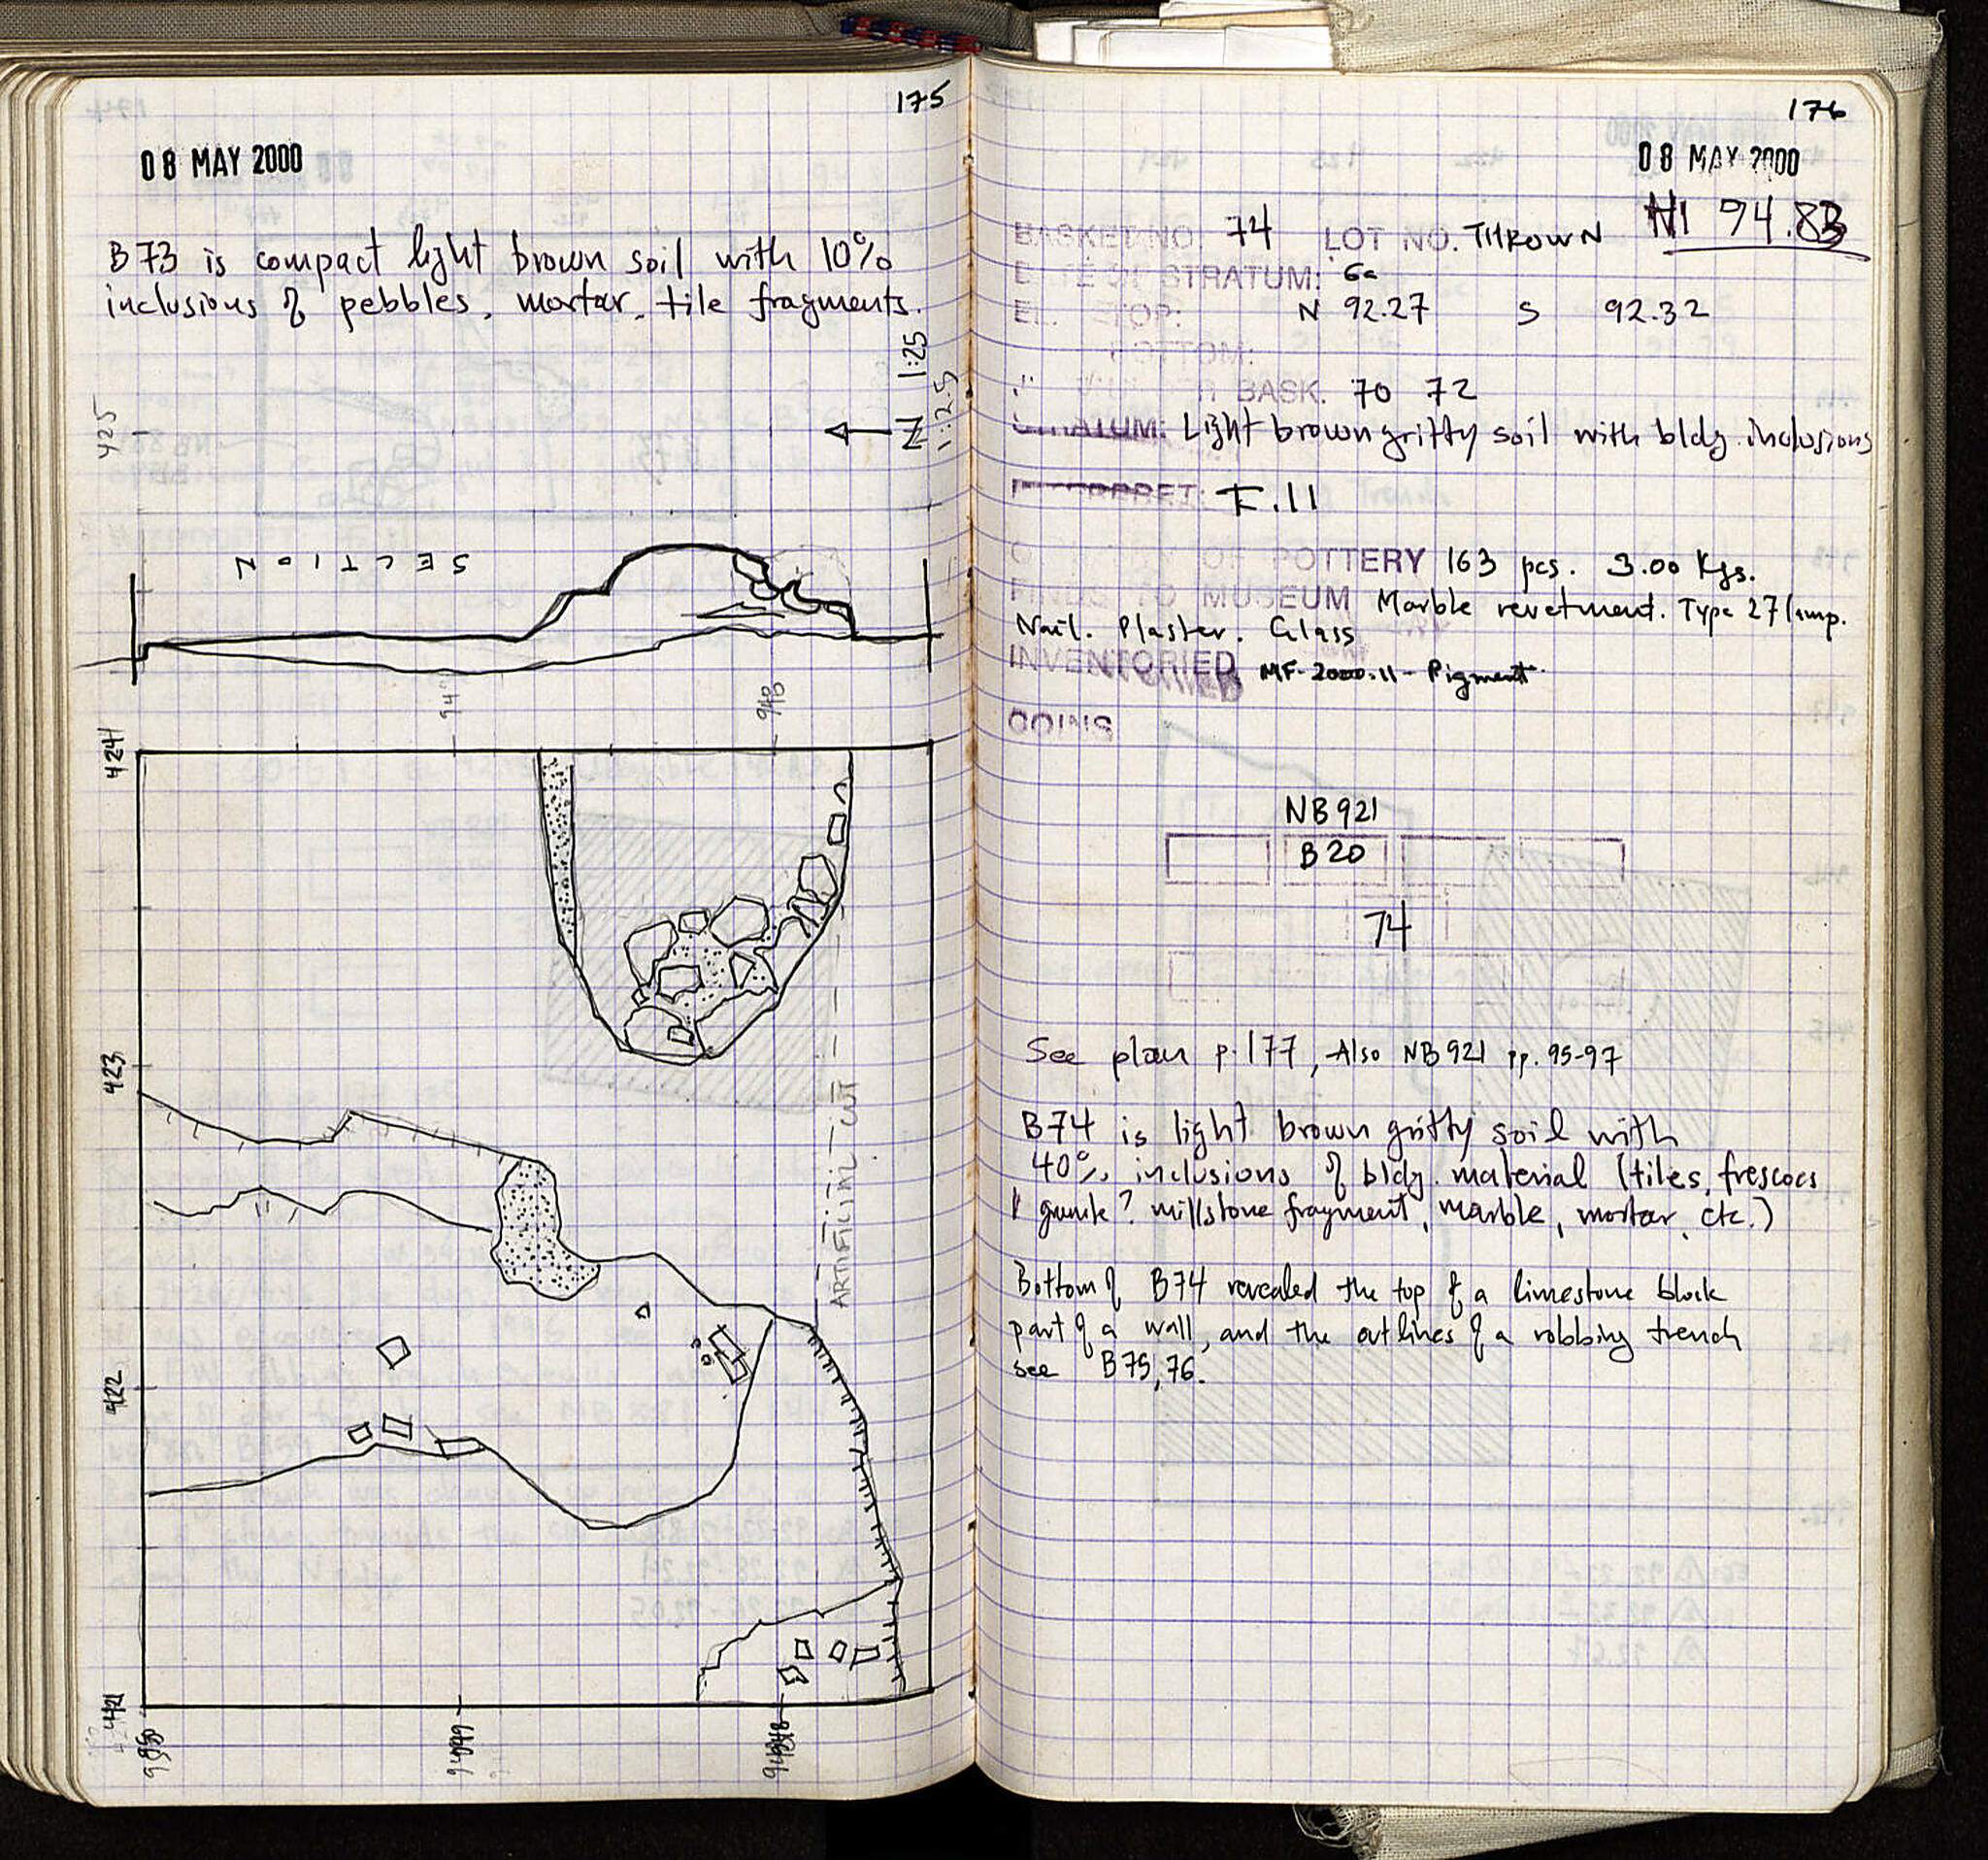 175
08 MAY 2000
B73 is compact light brown soil with 10%
inclusions of pebbles, mortar, tile fragments.
N 1:25
1:25
425
SECTION
948
424
423
ARTIFICIAL CUT
422
421
950
949
948
176
08 MAY 2000
N1 94.83
BASKET NO. 74 LOT NO. THROWN
STRATUM: 6a
EL. TOP: N 92.27 S 92.32
BOTTOM:
BASK. 70 72
STRATUM: Light brown gritty soil with bldg. inclusions
F.11
OF POTTERY 163 pcs. 3.00 Kgs.
FINDS TO MUSEUM Marble revetment. Type 27 lamp.
Nail. Plaster. Glass
INVENTORIED MF-2000-11 - Pigment
COINS
NB 921
B 20
74
See plan p. 177, Also NB 921 pp. 95-97
B74 is light brown gritty soil with
40% inclusions of bldg. material (tiles, frescoes
granite? millstone fragment, marble, mortar, etc.)
Bottom of B74 revealed the top of a limestone block
part of a wall, and the outlines of a robbing trench
see B75, 76.